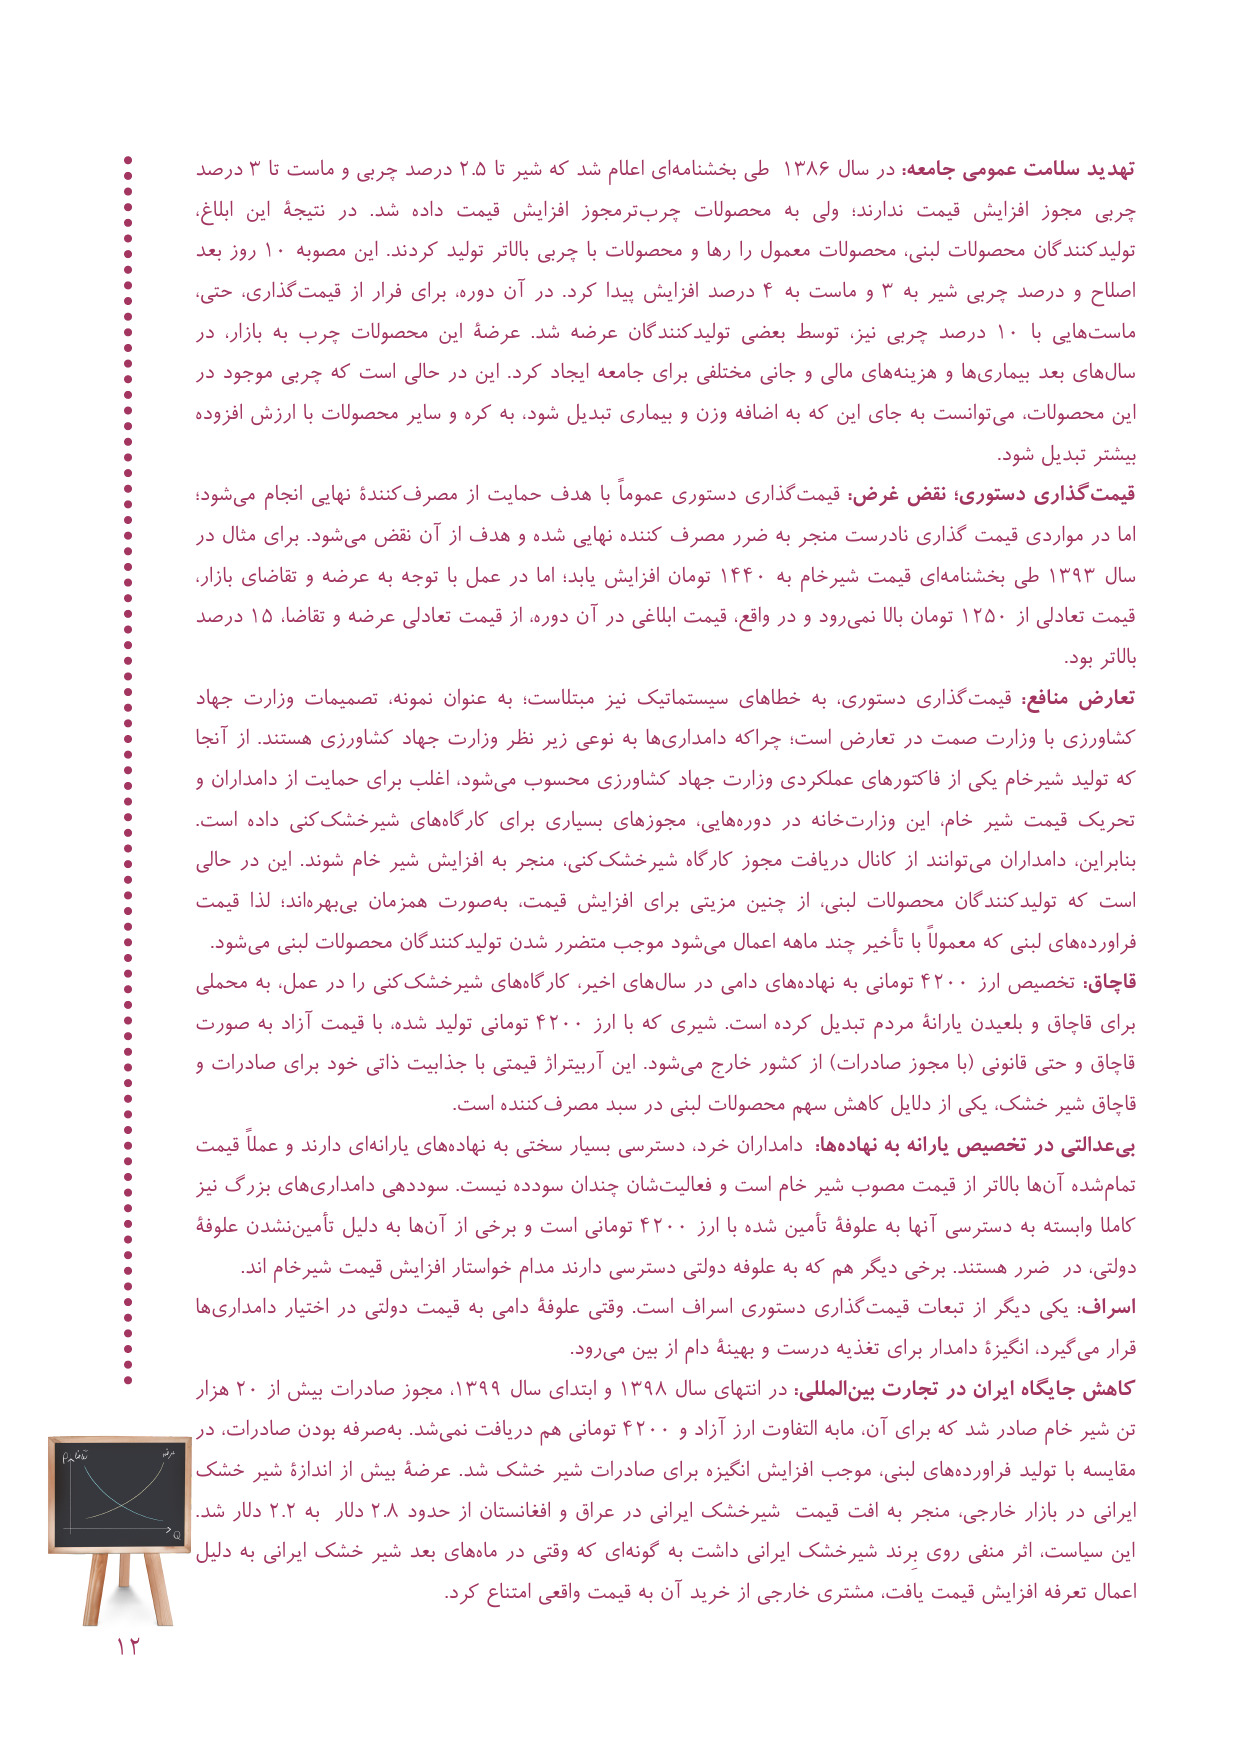 تهدید سلامت عمومی جامعه: در سال ۱۳۸۶ طی بخشنامه‌ای اعلام شد که شیر تا ۲.۵ درصد چربی و ماست تا ۳ درصد
چربی مجوز افزایش قیمت ندارند؛ ولی به محصولات چرب‌ترمجوز افزایش قیمت داده شد. در نتیجهٔ این ابلاغ،
تولیدکنندگان محصولات لبنی، محصولات معمول را رها و محصولات با چربی بالاتر تولید کردند. این مصوبه ۱۰ روز بعد
اصلاح و درصد چربی شیر به ۳ و ماست به ۴ درصد افزایش پیدا کرد. در آن دوره، برای فرار از قیمت‌گذاری، حتی،
ماست‌هایی با ۱۰ درصد چربی نیز، توسط بعضی تولیدکنندگان عرضه شد. عرضهٔ این محصولات چرب به بازار، در
سال‌های بعد بیماری‌ها و هزینه‌های مالی و جانی مختلفی برای جامعه ایجاد کرد. این در حالی است که چربی موجود در
این محصولات، می‌توانست به جای این که به اضافه وزن و بیماری تبدیل شود، به کره و سایر محصولات با ارزش افزوده
بیشتر تبدیل شود.
قیمت‌گذاری دستوری؛ نقض غرض: قیمت‌گذاری دستوری عموماً با هدف حمایت از مصرف‌کنندهٔ نهایی انجام می‌شود؛
اما در مواردی قیمت گذاری نادرست منجر به ضرر مصرف کننده نهایی شده و هدف از آن نقض می‌شود. برای مثال در
سال ۱۳۹۳ طی بخشنامه‌ای قیمت شیرخام به ۱۴۴۰ تومان افزایش یابد؛ اما در عمل با توجه به عرضه و تقاضای بازار،
قیمت تعادلی از ۱۲۵۰ تومان بالا نمی‌رود و در واقع، قیمت ابلاغی در آن دوره، از قیمت تعادلی عرضه و تقاضا، ۱۵ درصد
بالاتر بود.
تعارض منافع: قیمت‌گذاری دستوری، به خطاهای سیستماتیک نیز مبتلاست؛ به عنوان نمونه، تصمیمات وزارت جهاد
کشاورزی با وزارت صمت در تعارض است؛ چراکه دامداری‌ها به نوعی زیر نظر وزارت جهاد کشاورزی هستند. از آنجا
که تولید شیرخام یکی از فاکتورهای عملکردی وزارت جهاد کشاورزی محسوب می‌شود، اغلب برای حمایت از دامداران و
تحریک قیمت شیر خام، این وزارت‌خانه در دوره‌هایی، مجوزهای بسیاری برای کارگاه‌های شیرخشک‌کنی داده است.
بنابراین، دامداران می‌توانند از کانال دریافت مجوز کارگاه شیرخشک‌کنی، منجر به افزایش شیر خام شوند. این در حالی
است که تولیدکنندگان محصولات لبنی، از چنین مزیتی برای افزایش قیمت، به‌صورت همزمان بی‌بهره‌اند؛ لذا قیمت
فراورده‌های لبنی که معمولاً با تأخیر چند ماهه اعمال می‌شود موجب متضرر شدن تولیدکنندگان محصولات لبنی می‌شود.
قاچاق: تخصیص ارز ۴۲۰۰ تومانی به نهاده‌های دامی در سال‌های اخیر، کارگاه‌های شیرخشک‌کنی را در عمل، به محملی
برای قاچاق و بلعیدن یارانهٔ مردم تبدیل کرده است. شیری که با ارز ۴۲۰۰ تومانی تولید شده، با قیمت آزاد به صورت
قاچاق و حتی قانونی (با مجوز صادرات) از کشور خارج می‌شود. این آربیتراژ قیمتی با جذابیت ذاتی خود برای صادرات و
قاچاق شیر خشک، یکی از دلایل کاهش سهم محصولات لبنی در سبد مصرف‌کننده است.
بی‌عدالتی در تخصیص یارانه به نهاده‌ها: دامداران خرد، دسترسی بسیار سختی به نهاده‌های یارانه‌ای دارند و عملاً قیمت
تمام‌شده آن‌ها بالاتر از قیمت مصوب شیر خام است و فعالیت‌شان چندان سودده نیست. سوددهی دامداری‌های بزرگ نیز
کاملا وابسته به دسترسی آنها به علوفهٔ تأمین شده با ارز ۴۲۰۰ تومانی است و برخی از آن‌ها به دلیل تأمین‌نشدن علوفهٔ
دولتی، در ضرر هستند. برخی دیگر هم که به علوفه دولتی دسترسی دارند مدام خواستار افزایش قیمت شیرخام اند.
اسراف: یکی دیگر از تبعات قیمت‌گذاری دستوری اسراف است. وقتی علوفهٔ دامی به قیمت دولتی در اختیار دامداری‌ها
قرار می‌گیرد، انگیزهٔ دامدار برای تغذیه درست و بهینهٔ دام از بین می‌رود.
کاهش جایگاه ایران در تجارت بین‌المللی: در انتهای سال ۱۳۹۸ و ابتدای سال ۱۳۹۹، مجوز صادرات بیش از ۲۰ هزار
تن شیر خام صادر شد که برای آن، مابه التفاوت ارز آزاد و ۴۲۰۰ تومانی هم دریافت نمی‌شد. به‌صرفه بودن صادرات، در
مقایسه با تولید فراورده‌های لبنی، موجب افزایش انگیزه برای صادرات شیر خشک شد. عرضهٔ بیش از اندازهٔ شیر خشک
ایرانی در بازار خارجی، منجر به افت قیمت شیرخشک ایرانی در عراق و افغانستان از حدود ۲.۸ دلار به ۲.۲ دلار شد.
این سیاست، اثر منفی روی بِرند شیرخشک ایرانی داشت به گونه‌ای که وقتی در ماه‌های بعد شیر خشک ایرانی به دلیل
اعمال تعرفه افزایش قیمت یافت، مشتری خارجی از خرید آن به قیمت واقعی امتناع کرد.
عرضه
تقاضا
P
Q
۱۲